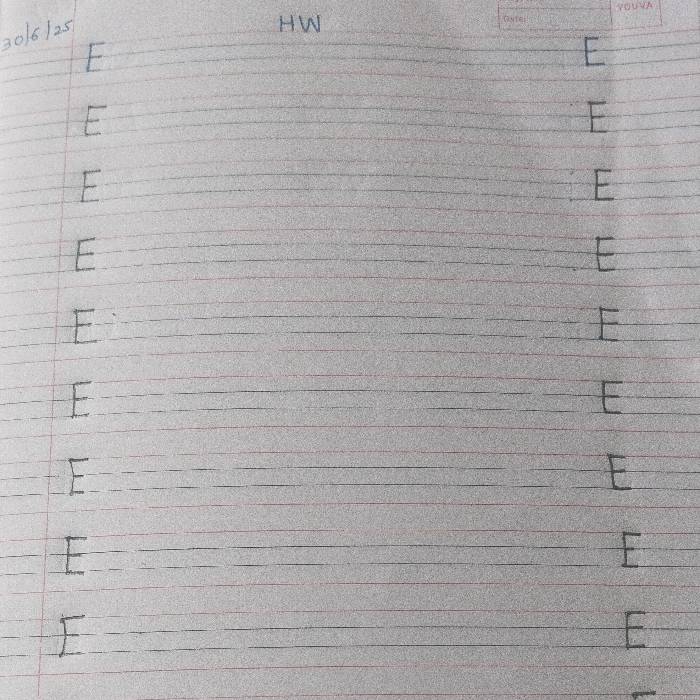 30/6/25 HW YOUVA
Date:
E E
E E
E E
E E
E E
E E
E E
E E
E E